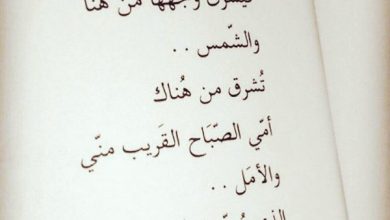 وجهها من هنا
والشّمس . .
تُشرق من هُناك
أمّي الصّبَاح القَريب منّي
والأمَل . .